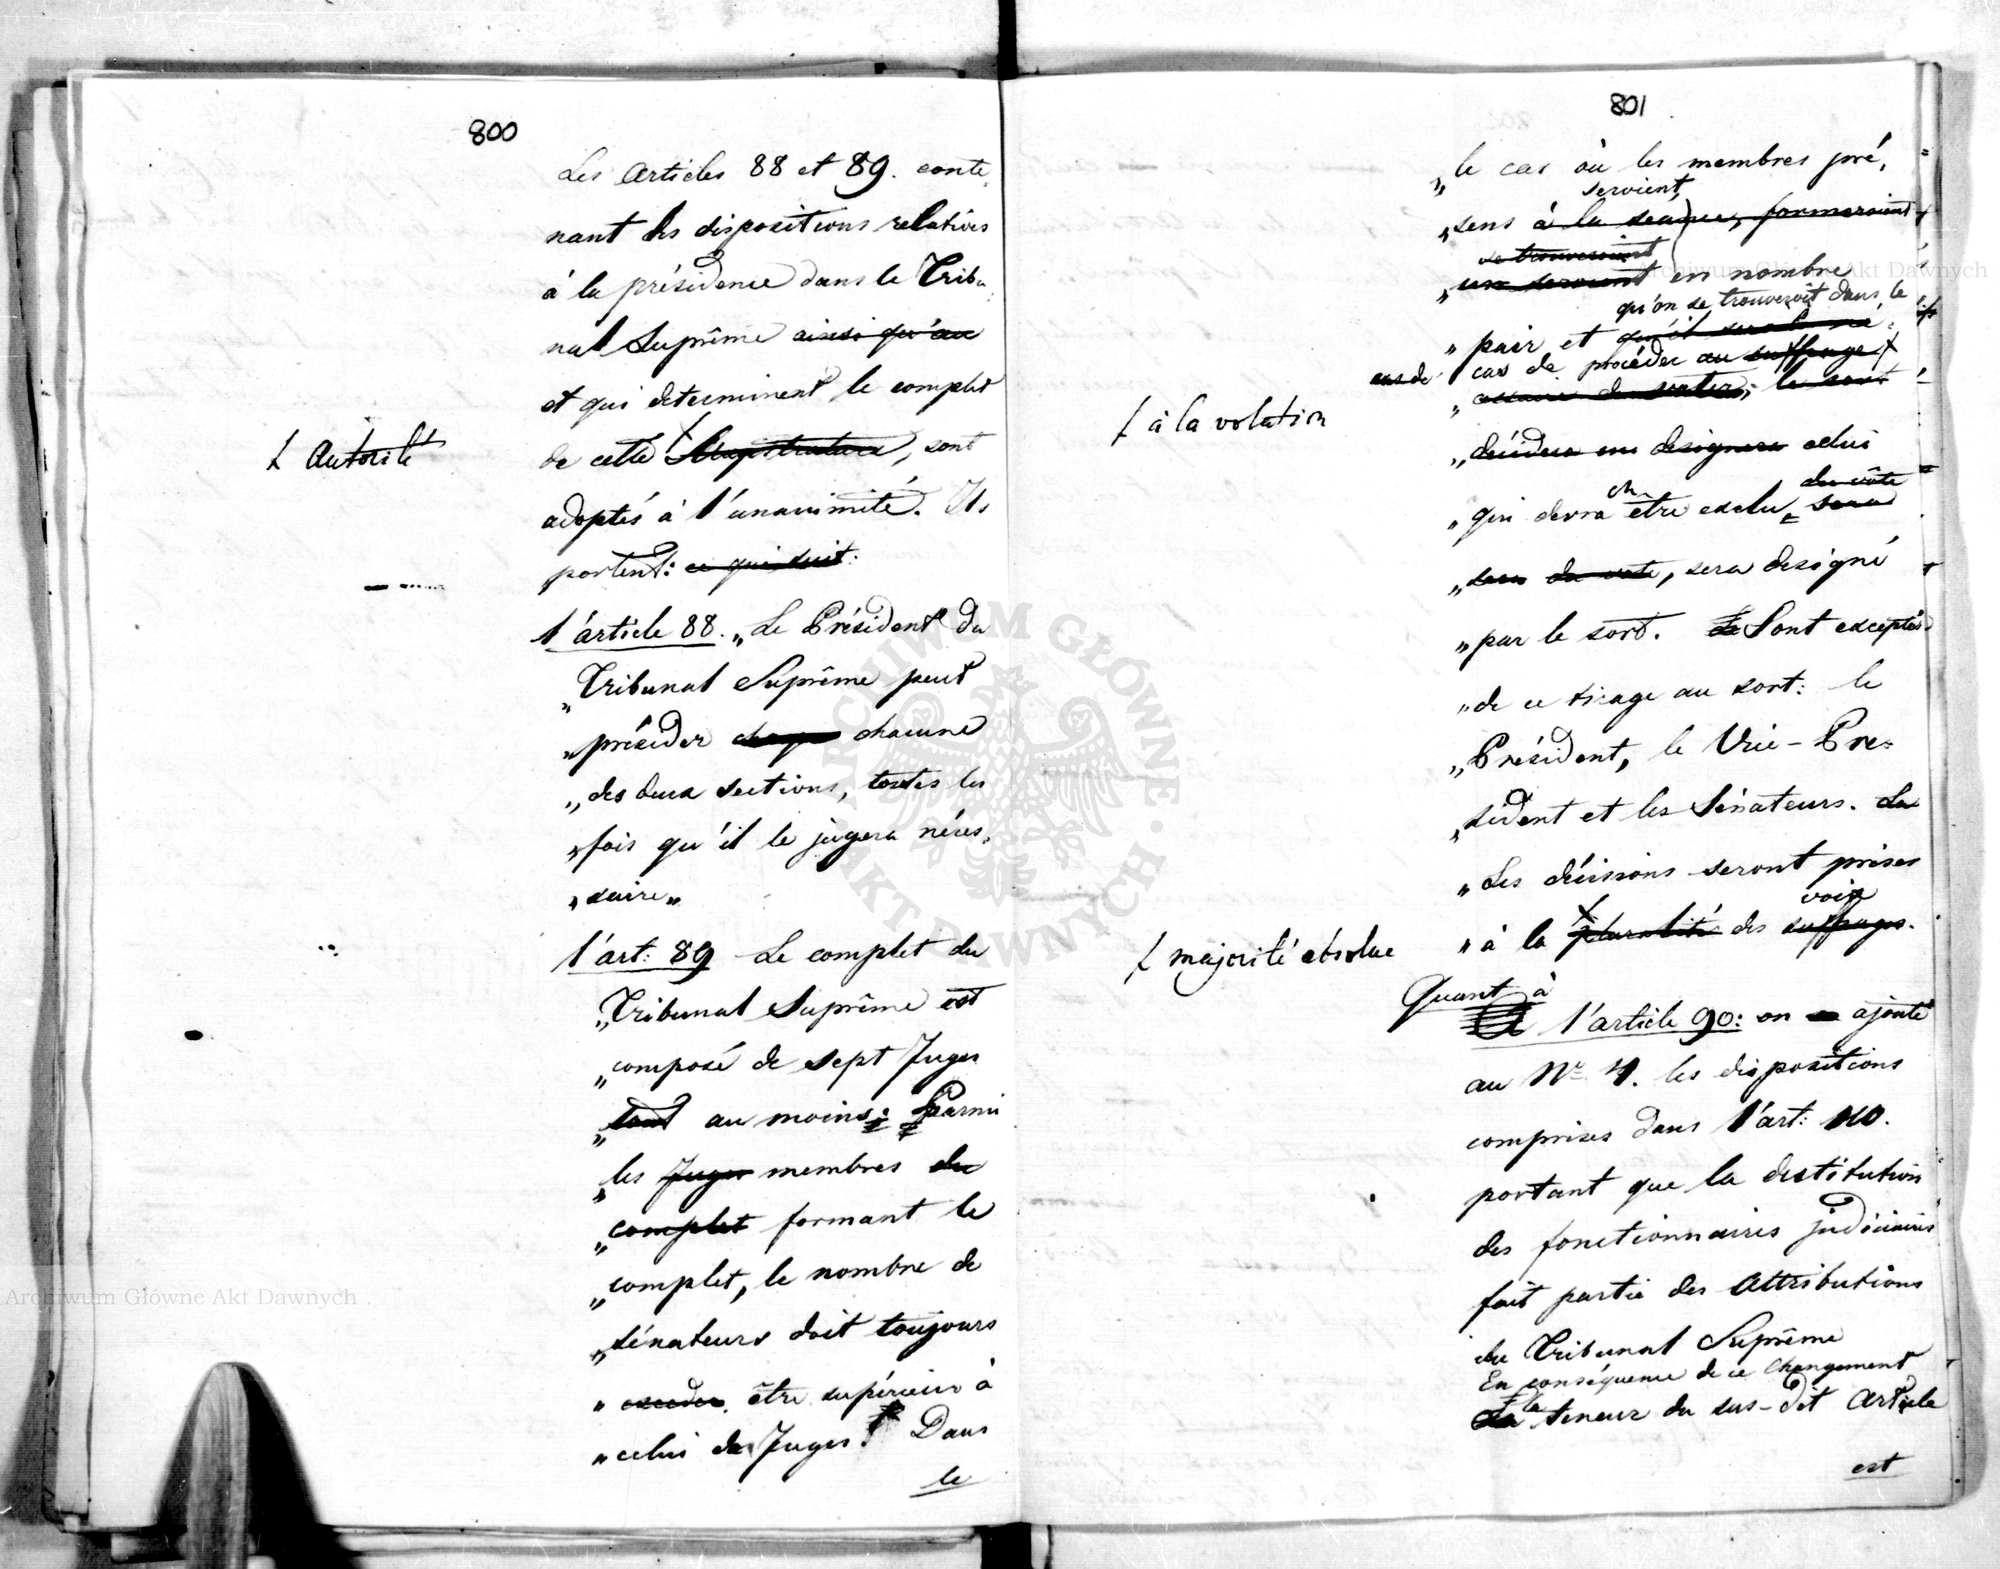 800
Les Articles 88 et 89. conte,
nant les dispositions relatives
à la présidence dans le Tribu,
nal Suprême ainsi qu'au
et qui determinent le complet
ƚ Autorité
de cette Magistrature, sont
adoptés à l'unanimité. Ils
portent: ce qui suit:
l'article 88. „Le Président du
„Tribunal Suprême peut
„présider chaque chacune
„des deux sections, toutes les
„fois qu'il le jugera néces,
„saire„
l'art: 89 Le complet du
„Tribunal Suprême est
„composé de sept Juges
„tout au moins: Parmi
„les Juges membres du
„complet formant le
„complet, le nombre de
„sénateurs doit toujours
„exceder être supérieur à
„celui de Juges. Dans
le
801
„le cas où les membres pré,
seroient
„sens à la seance, formeroient
se trouveroient
„un seroient en nombre
qu'on se trouveroit dans le
„pair et qu'il sera le né,
cas de cas de procéder au suffrage ƚ
„cessaire de voter, le sort
ƚ à la votation
„décidera ou designera celui
du vôte
„qui devra en être exclu, sera
„sera du vote, sera designé
„par le sort. Sont exceptés
„de ce tirage au sort: le
„Président, le Vice-Pre-
„sident et les Sénateurs. La
„Les décisions seront prises
voix
„à la pluralité des suffrages.
ƚ majorité absolue
Quant à
A l'article 90: on a ajouté
au Nr 4. les dispositions
comprises dans l'art: 110.
portant que la destitution
des fonctionnaires judiciaires
fait partie des Attributions
du Tribunal Suprême
En conséquence de ce Changement
La la teneur du sus-dit Article
est
Archiwum Główne Akt Dawnych
Archiwum Główne Akt Dawnych
ARCHIWUM GŁÓWNE · AKT DAWNYCH ·